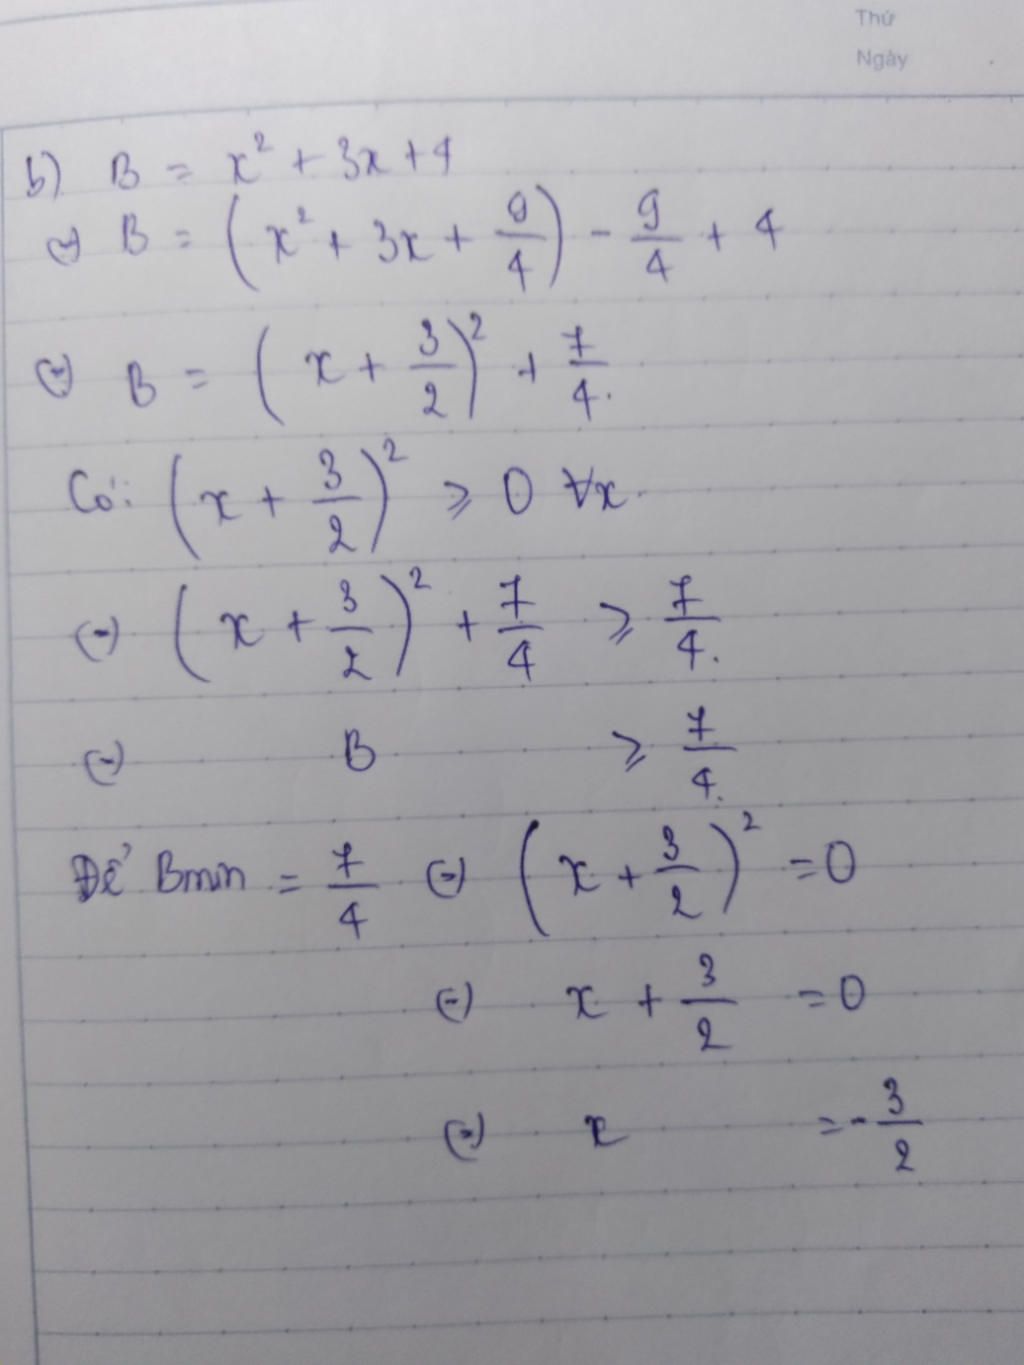 Thứ
Ngày
b) B = x² + 3x + 4
⇔ B = (x² + 3x + 9/4) - 9/4 + 4
⇔ B = (x + 3/2)² + 7/4.
Có: (x + 3/2)² ≥ 0 ∀x.
⇔ (x + 3/2)² + 7/4 ≥ 7/4.
⇔ B ≥ 7/4.
Để Bmin = 7/4 ⇔ (x + 3/2)² = 0
⇔ x + 3/2 = 0
⇔ x = -3/2